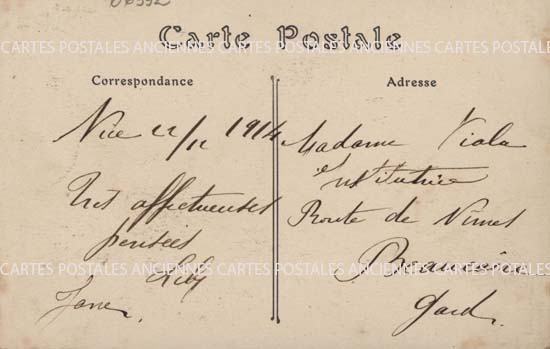 Carte Postale
CARTES POSTALES ANCIENNES CARTES POSTALES ANCIENNES CARTES POSTALES
Correspondance
Nice 22/11 1914
Très affectueuses
pensées
Jane
Adresse
Madame Viala
Institutrice
Route de Nimes
Beaucaire
Gard
CARTES POSTALES ANCIENNES CARTES POSTALES ANCIENNES CARTES POSTALES